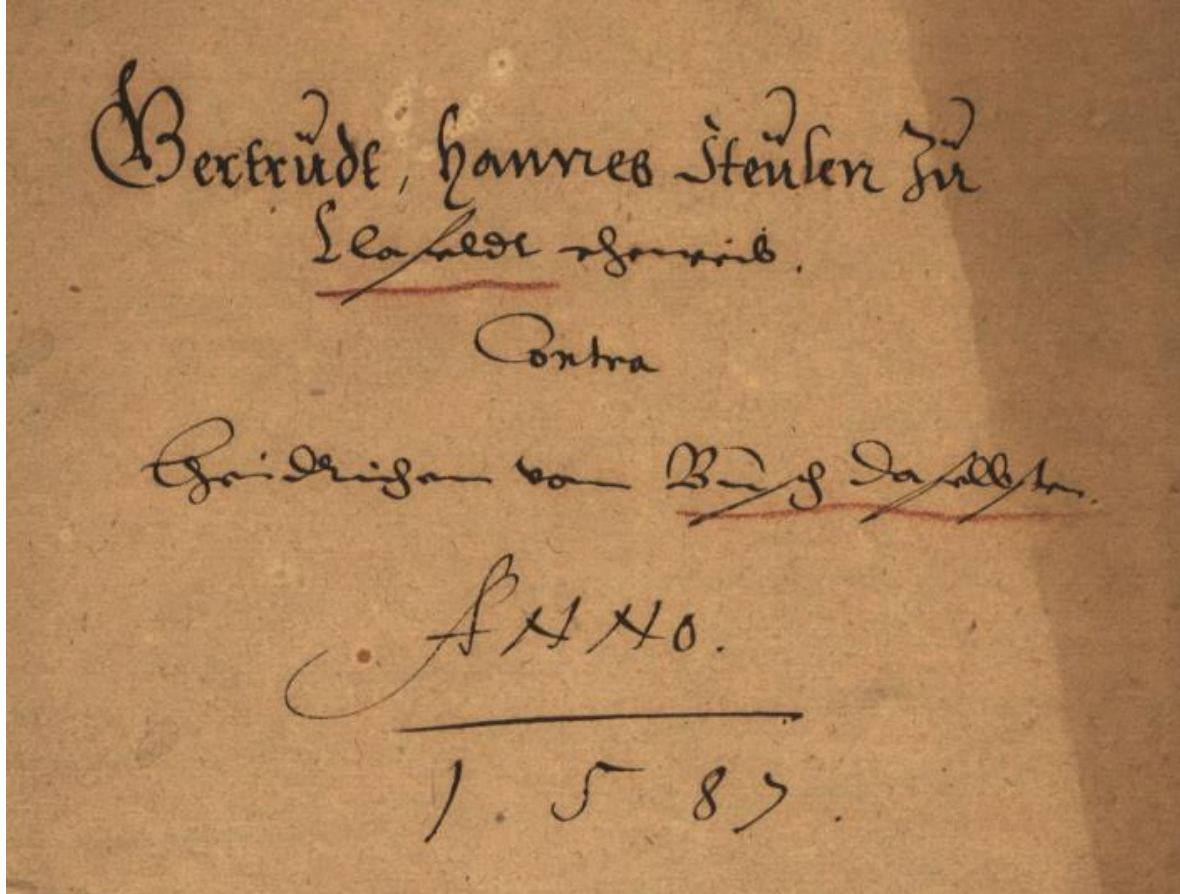 Gertrudt, Hannes Steulen zu
Llafeldt eheweib.
Contra
Heidrichen von Busch daselbsten.
ANNO.
1. 5 87.